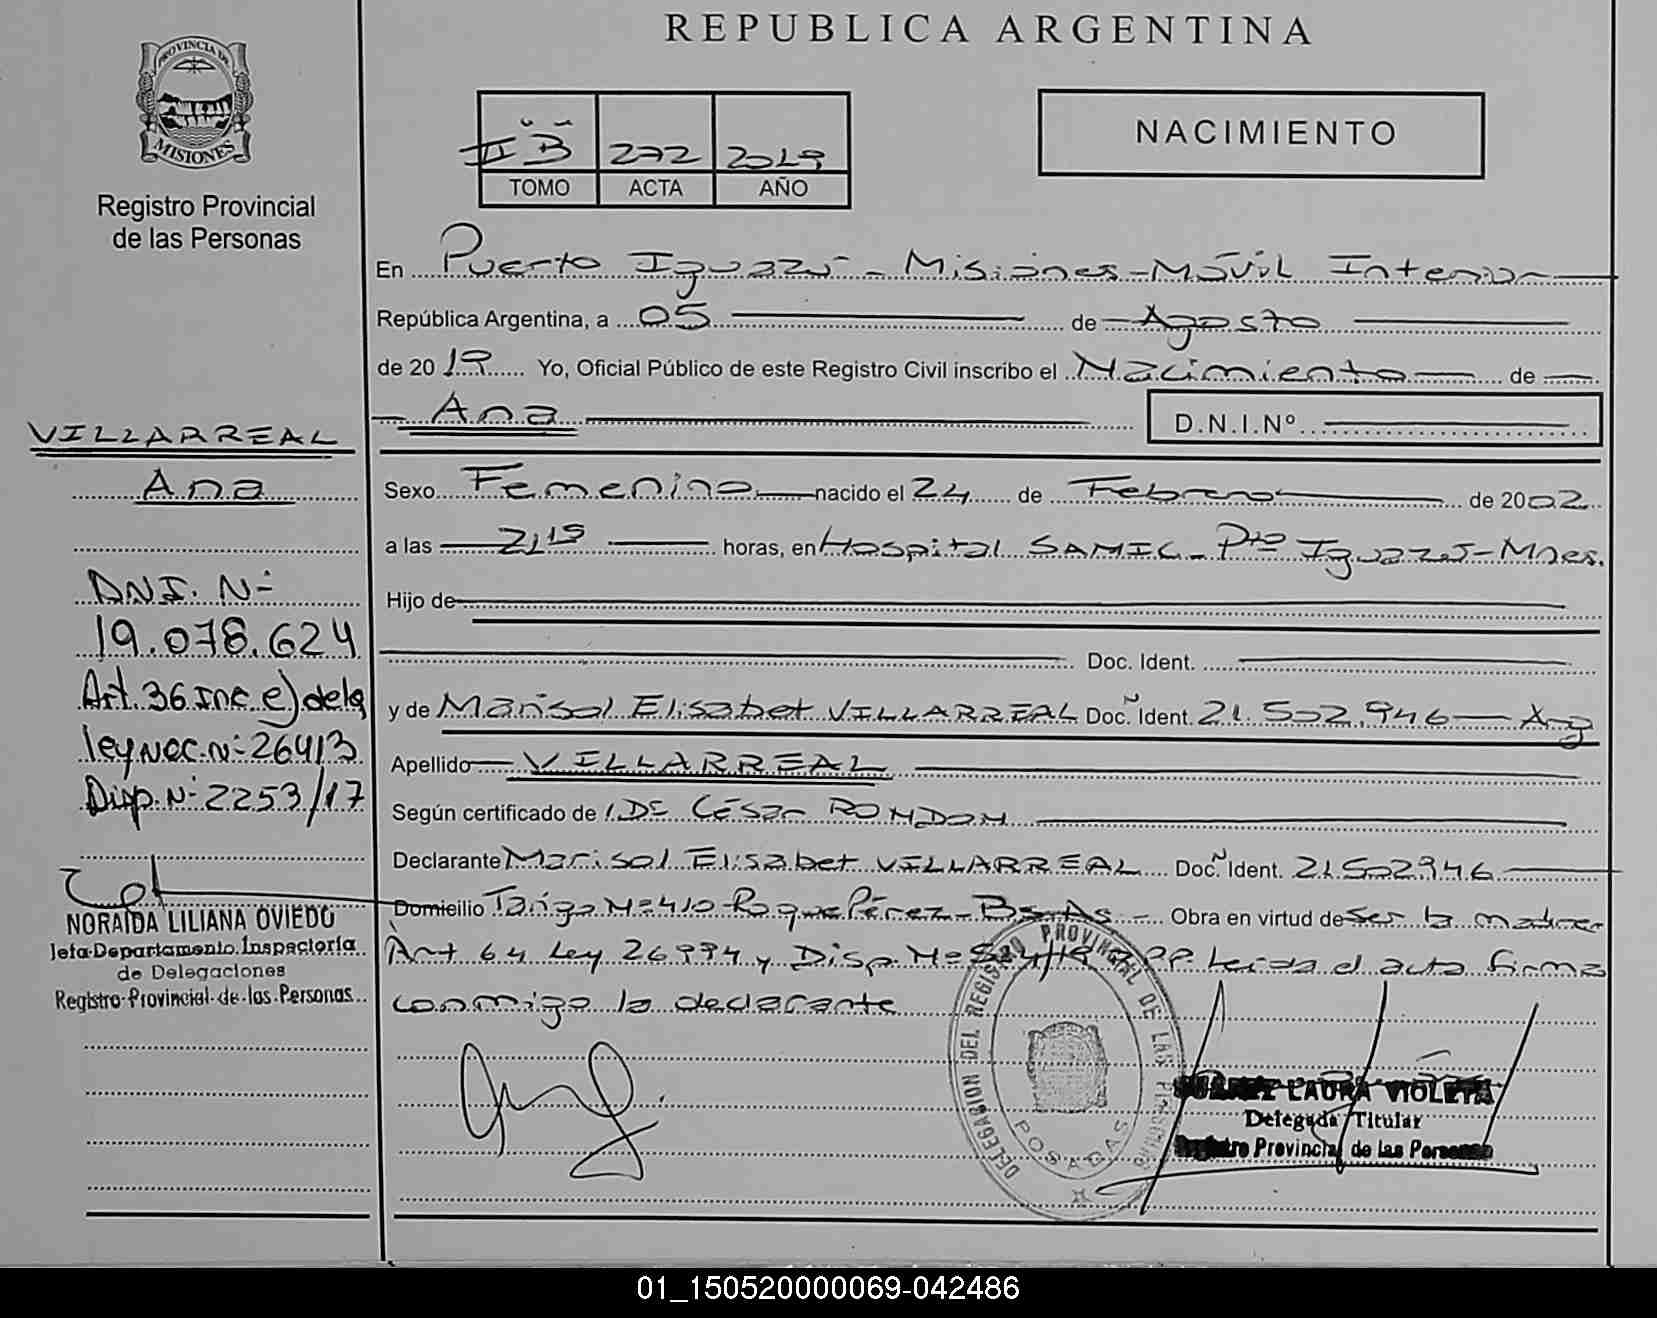 REPUBLICA ARGENTINA
PROVINCIA DE
MISIONES
Registro Provincial
de las Personas
II B 272 2019
TOMO ACTA AÑO
NACIMIENTO
En Puerto Iguazú - Misiones - Móvil Interior
República Argentina, a 05 de Agosto
de 2019 Yo, Oficial Público de este Registro Civil inscribo el Nacimiento de
Ana D.N.I.Nº
Sexo Femenino nacido el 24 de Febrero de 2002
a las 21:15 horas, en Hospital SAMIC - Pto Iguazú - Mnes.
Hijo de
Doc. Ident.
y de Marisol Elisabet VILLARREAL Doc. Ident. 21.502.946 — Arg
Apellido VILLARREAL
Según certificado de César RONDON
Declarante Marisol Elisabet VILLARREAL Doc. Ident. 21.502.946
Domicilio Nº 410 - Roque Pérez - Bs. As. Obra en virtud de ser la madre
Art 64 Ley 26994 y Disp Nº leída el acta firma
conmigo la declarante
VILLARREAL
Ana
DNI. Nº
19.078.624
Art. 36 Inc e) de la
ley NAC. Nº 26413
Disp. Nº 2253/17
NORAIDA LILIANA OVIEDO
Jefa Departamento Inspectoría
de Delegaciones
Registro Provincial de las Personas
DELEGACION DEL REGISTRO PROVINCIAL DE LAS PERSONAS
POSADAS
LAURA VIOLETA
Delegada Titular
Registro Provincial de las Personas
01_150520000069-042486